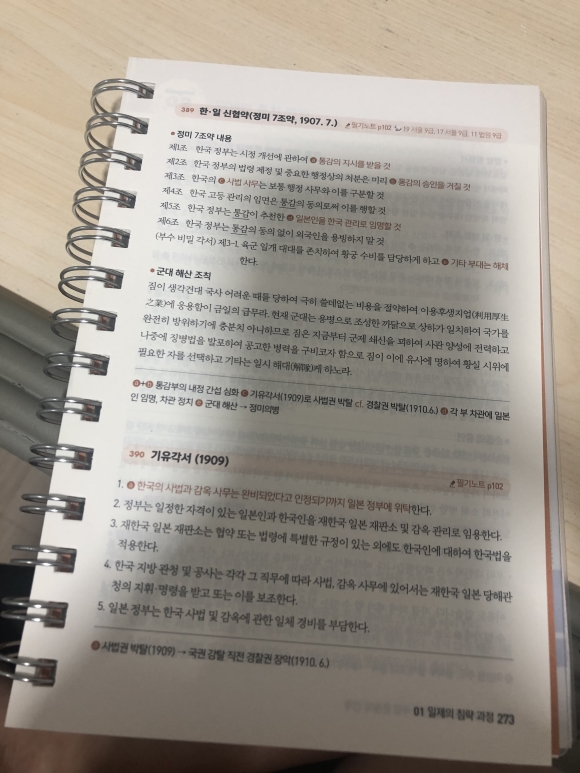 389 한·일 신협약(정미 7조약, 1907. 7.) 필기노트 p102 19 서울 9급, 17 서울 9급, 11 법원 9급
• 정미 7조약 내용
제1조 한국 정부는 시정 개선에 관하여 ⓐ 통감의 지시를 받을 것
제2조 한국 정부의 법령 제정 및 중요한 행정상의 처분은 미리 ⓑ 통감의 승인을 거칠 것
제3조 한국의 ⓒ 사법 사무는 보통 행정 사무와 이를 구분할 것
제4조 한국 고등 관리의 임면은 통감의 동의로써 이를 행할 것
제5조 한국 정부는 통감이 추천한 ⓓ 일본인을 한국 관리로 임명할 것
제6조 한국 정부는 통감의 동의 없이 외국인을 용빙하지 말 것
(부수 비밀 각서) 제3-1. 육군 일개 대대를 존치하여 황궁 수비를 담당하게 하고 ⓔ 기타 부대는 해체
한다.
• 군대 해산 조칙
짐이 생각건대 국사 어려운 때를 당하여 극히 쓸데없는 비용을 절약하여 이용후생지업(利用厚生
之業)에 응용함이 금일의 급무라. 현재 군대는 용병으로 조성한 까닭으로 상하가 일치하여 국가를
완전히 방위하기에 충분치 아니하므로 짐은 지금부터 군제 쇄신을 꾀하여 사관 양성에 전력하고
나중에 징병법을 발포하여 공고한 병력을 구비코자 함으로 짐이 이에 유사에 명하여 황실 시위에
필요한 자를 선택하고 기타는 일시 해대(解隊)케 하노라.
ⓐ+ⓑ 통감부의 내정 간섭 심화 ⓒ 기유각서(1909)로 사법권 박탈 cf. 경찰권 박탈(1910.6.) ⓓ 각 부 차관에 일본
인 임명, 차관 정치 ⓔ 군대 해산 → 정미의병
390 기유각서 (1909) 필기노트 p102
1. ⓐ 한국의 사법과 감옥 사무는 완비되었다고 인정되기까지 일본 정부에 위탁한다.
2. 정부는 일정한 자격이 있는 일본인과 한국인을 재한국 일본 재판소 및 감옥 관리로 임용한다.
3. 재한국 일본 재판소는 협약 또는 법령에 특별한 규정이 있는 외에도 한국인에 대하여 한국법을
적용한다.
4. 한국 지방 관청 및 공사는 각각 그 직무에 따라 사법, 감옥 사무에 있어서는 재한국 일본 당해관
청의 지휘·명령을 받고 또는 이를 보조한다.
5. 일본 정부는 한국 사법 및 감옥에 관한 일체 경비를 부담한다.
ⓐ 사법권 박탈(1909) → 국권 강탈 직전 경찰권 장악(1910. 6.)
01 일제의 침략 과정 273